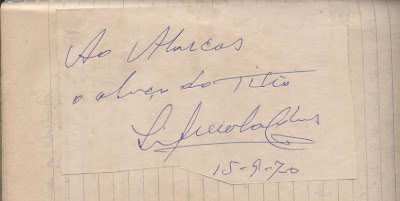 Ao Marcos
o abraço do Titio
15-9-70